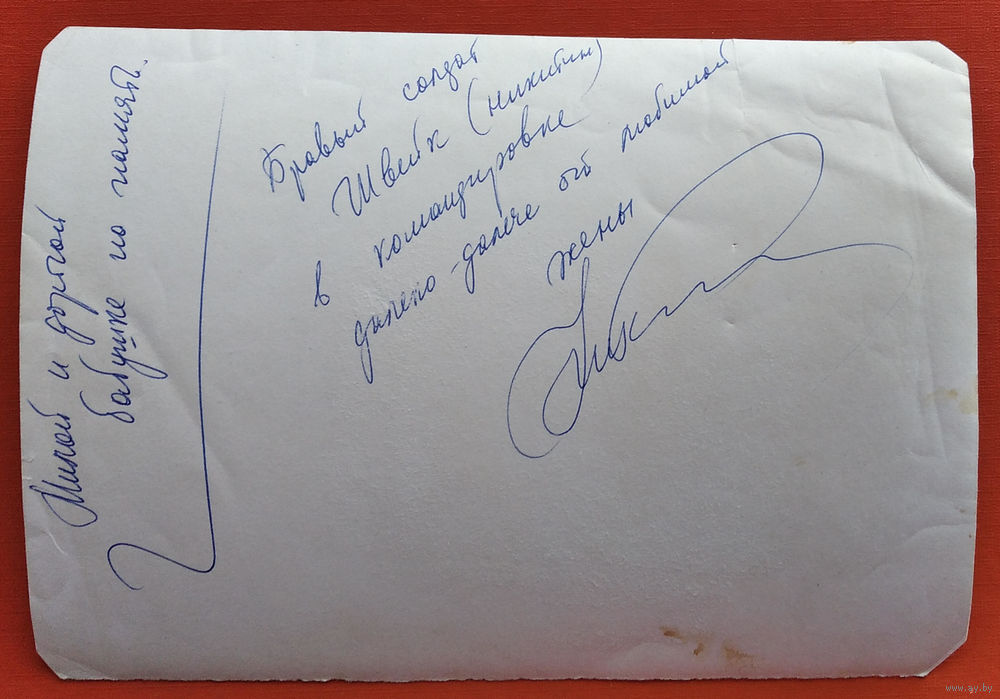 Милой и дорогой
бабушке по памяти.
Бравый солдат
Швейк (Никитин)
в командировке
далеко-далече от любимой
жены
www.ay.by